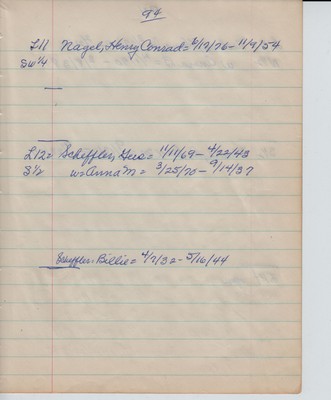 94
L11 Nagel, Henry Conrad = 6/17/76 - 11/9/54
SW 1/4
L12 = Scheffler, Gus = 11/11/69 - 4/22/43
S 1/2 w = Anna M = 3/25/70 - 9/14/37
Scheffler - Billie = 4/7/32 - 5/16/44